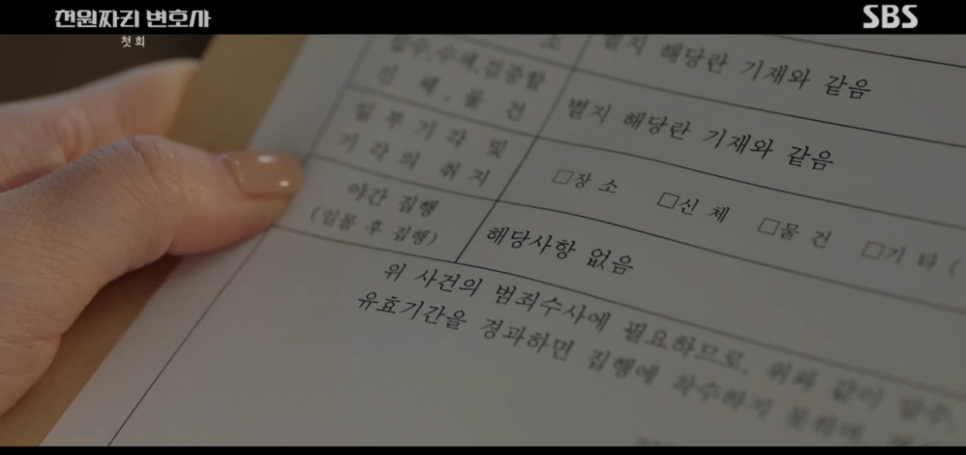 천원짜리 변호사
첫회
SBS
소 별지 해당란 기재와 같음
압수,수색,검증할
신 체 , 물 건 별지 해당란 기재와 같음
일 부 기 각 및
기 각 의 취 지 □장 소 □신 체 □물 건 □기 타 (
야간 집행
(일몰 후 집행) 해당사항 없음
위 사건의 범죄수사에 필요하므로, 위와 같이 압수,
유효기간을 경과하면 집행에 착수하지 못하며,